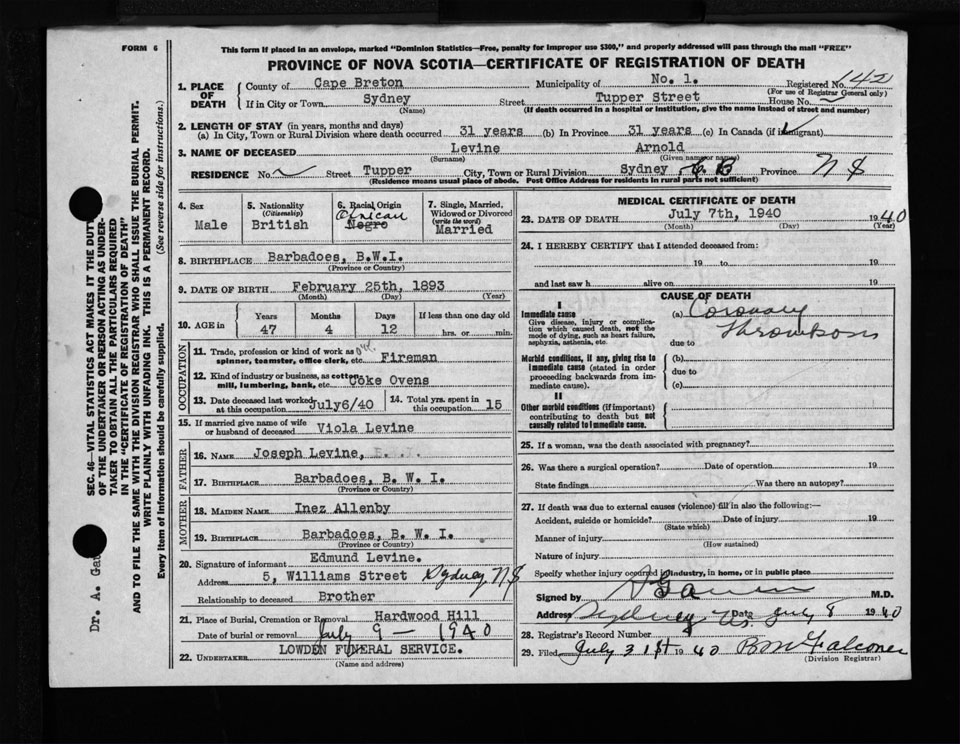 FORM 6
This form if placed in an envelope, marked "Dominion Statistics—Free, penalty for improper use $300," and properly addressed will pass through the mail "FREE"
PROVINCE OF NOVA SCOTIA—CERTIFICATE OF REGISTRATION OF DEATH
SEC. 46—VITAL STATISTICS ACT MAKES IT THE DUTY
OF THE UNDERTAKER OR PERSON ACTING AS UNDER-
TAKER TO OBTAIN ALL THE PARTICULARS REQUIRED
IN THE "CERTIFICATE OF REGISTRATION OF DEATH"
AND TO FILE THE SAME WITH THE DIVISION REGISTRAR WHO SHALL ISSUE THE BURIAL PERMIT.
WRITE PLAINLY WITH UNFADING INK. THIS IS A PERMANENT RECORD.
Every item of Information should be carefully supplied. (See reverse side for instructions.)
Dr. A. Ga
1. PLACE OF DEATH County of Cape Breton Municipality of No. 1. Registered No. 142
(For use of Registrar General only)
If in City or Town Sydney Street Tupper Street House No.
(Name) (If death occurred in a hospital or institution, give the name instead of street and number)
2. LENGTH OF STAY (in years, months and days)
(a) In City, Town or Rural Division where death occurred 31 years (b) In Province 31 years (c) In Canada (if immigrant)
3. NAME OF DECEASED Levine Arnold
(Surname) (Given name or names)
RESIDENCE No. Street Tupper City, Town or Rural Division Sydney C B Province N S
(Residence means usual place of abode. Post Office Address for residents in rural parts not sufficient)
4. Sex Male
5. Nationality (Citizenship) British
6. Racial Origin African Negro
7. Single, Married, Widowed or Divorced (write the word) Married
8. BIRTHPLACE Barbadoes, B.W.I.
(Province or Country)
9. DATE OF BIRTH February 25th, 1893
(Month) (Day) (Year)
10. AGE in Years 47 Months 4 Days 12 If less than one day old hrs. or min.
OCCUPATION
11. Trade, profession or kind of work as spinner, teamster, office clerk, etc. Fireman
12. Kind of industry or business, as cotton mill, lumbering, bank, etc. Coke Ovens
13. Date deceased last worked at this occupation July6/40 14. Total yrs. spent in this occupation 15
15. If married give name of wife or husband of deceased Viola Levine
FATHER
16. NAME Joseph Levine,
17. BIRTHPLACE Barbadoes, B. W. I.
(Province or Country)
MOTHER
18. MAIDEN NAME Inez Allenby
19. BIRTHPLACE Barbadoes, B. W. I.
(Province or Country)
20. Signature of informant Edmund Levine.
Address 5, Williams Street Sydney, N S
Relationship to deceased Brother
21. Place of Burial, Cremation or Removal Hardwood Hill
Date of burial or removal July 9 — 1940
22. UNDERTAKER LOWDEN FUNERAL SERVICE.
(Name and address)
MEDICAL CERTIFICATE OF DEATH
23. DATE OF DEATH July 7th, 1940 1940
(Month) (Day) (Year)
24. I HEREBY CERTIFY that I attended deceased from:
19 to 19
and last saw h alive on 19
CAUSE OF DEATH
I
Immediate cause (a) Coronary
Give disease, injury or complica-
tion which caused death, not the
mode of dying, such as heart failure,
asphyxia, asthenia, etc.
Thrombosis
due to
Morbid conditions, if any, giving rise to
immediate cause (stated in order
proceeding backwards from im-
mediate cause).
(b)
due to
(c)
II
Other morbid conditions (if important)
contributing to death but not
causally related to immediate cause.
25. If a woman, was the death associated with pregnancy?
26. Was there a surgical operation? Date of operation 19
State findings Was there an autopsy?
27. If death was due to external causes (violence) fill in also the following:—
Accident, suicide or homicide? Date of injury 19
(State which)
Manner of injury
(How sustained)
Nature of injury
Specify whether injury occurred in industry, in home, or in public place
Signed by M.D.
Address Sydney N.S. Date July 8 1940
28. Registrar's Record Number
29. Filed July 31st 1940 B McFalconer
(Division Registrar)